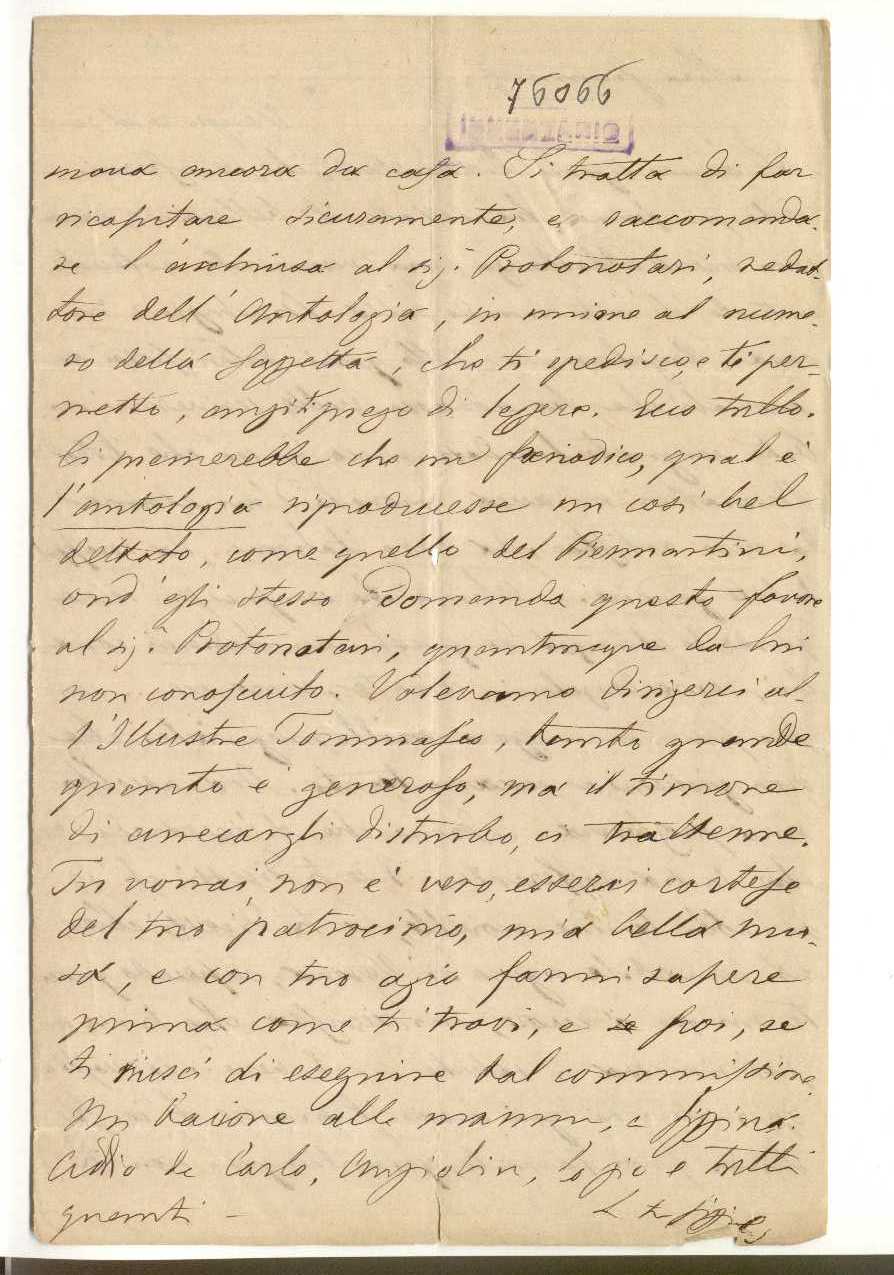 76066
INVENTARIO
mova ancora da casa. Si tratta di far
ricapitare sicuramente, e raccomanda-
re l'acchiusa al sig.r Protonotari, redat-
tore dell'Antologia, in unione al nume-
ro della Gazzetta, che ti spedisco, e ti per-
metto, anzi ti prego di leggere. Ecco tutto.
Ci premerebbe che un periodico, qual è
l'antologia riproducesse un così bel
dettato, come quello del Piermartini,
ond'egli stesso domanda questo favore
al sig.r Protonotari, quantunque da lui
non conosciuto. Volevamo dirigerci al-
l'Illustre Tommaseo, tanto grande
quanto è generoso, ma il timore
di arrecargli disturbo, ci trattenne.
Tu vorrai, non è vero, esserci cortese
del tuo patrocinio, mia bella mu-
sa, e con tuo agio farmi sapere
prima come ti trovi, e se poi, se
ti riuscì di eseguire tal commissione
Un bacione alla mamma, a Pippina.
Addio da Carlo, e tutti
quanti –
L tu